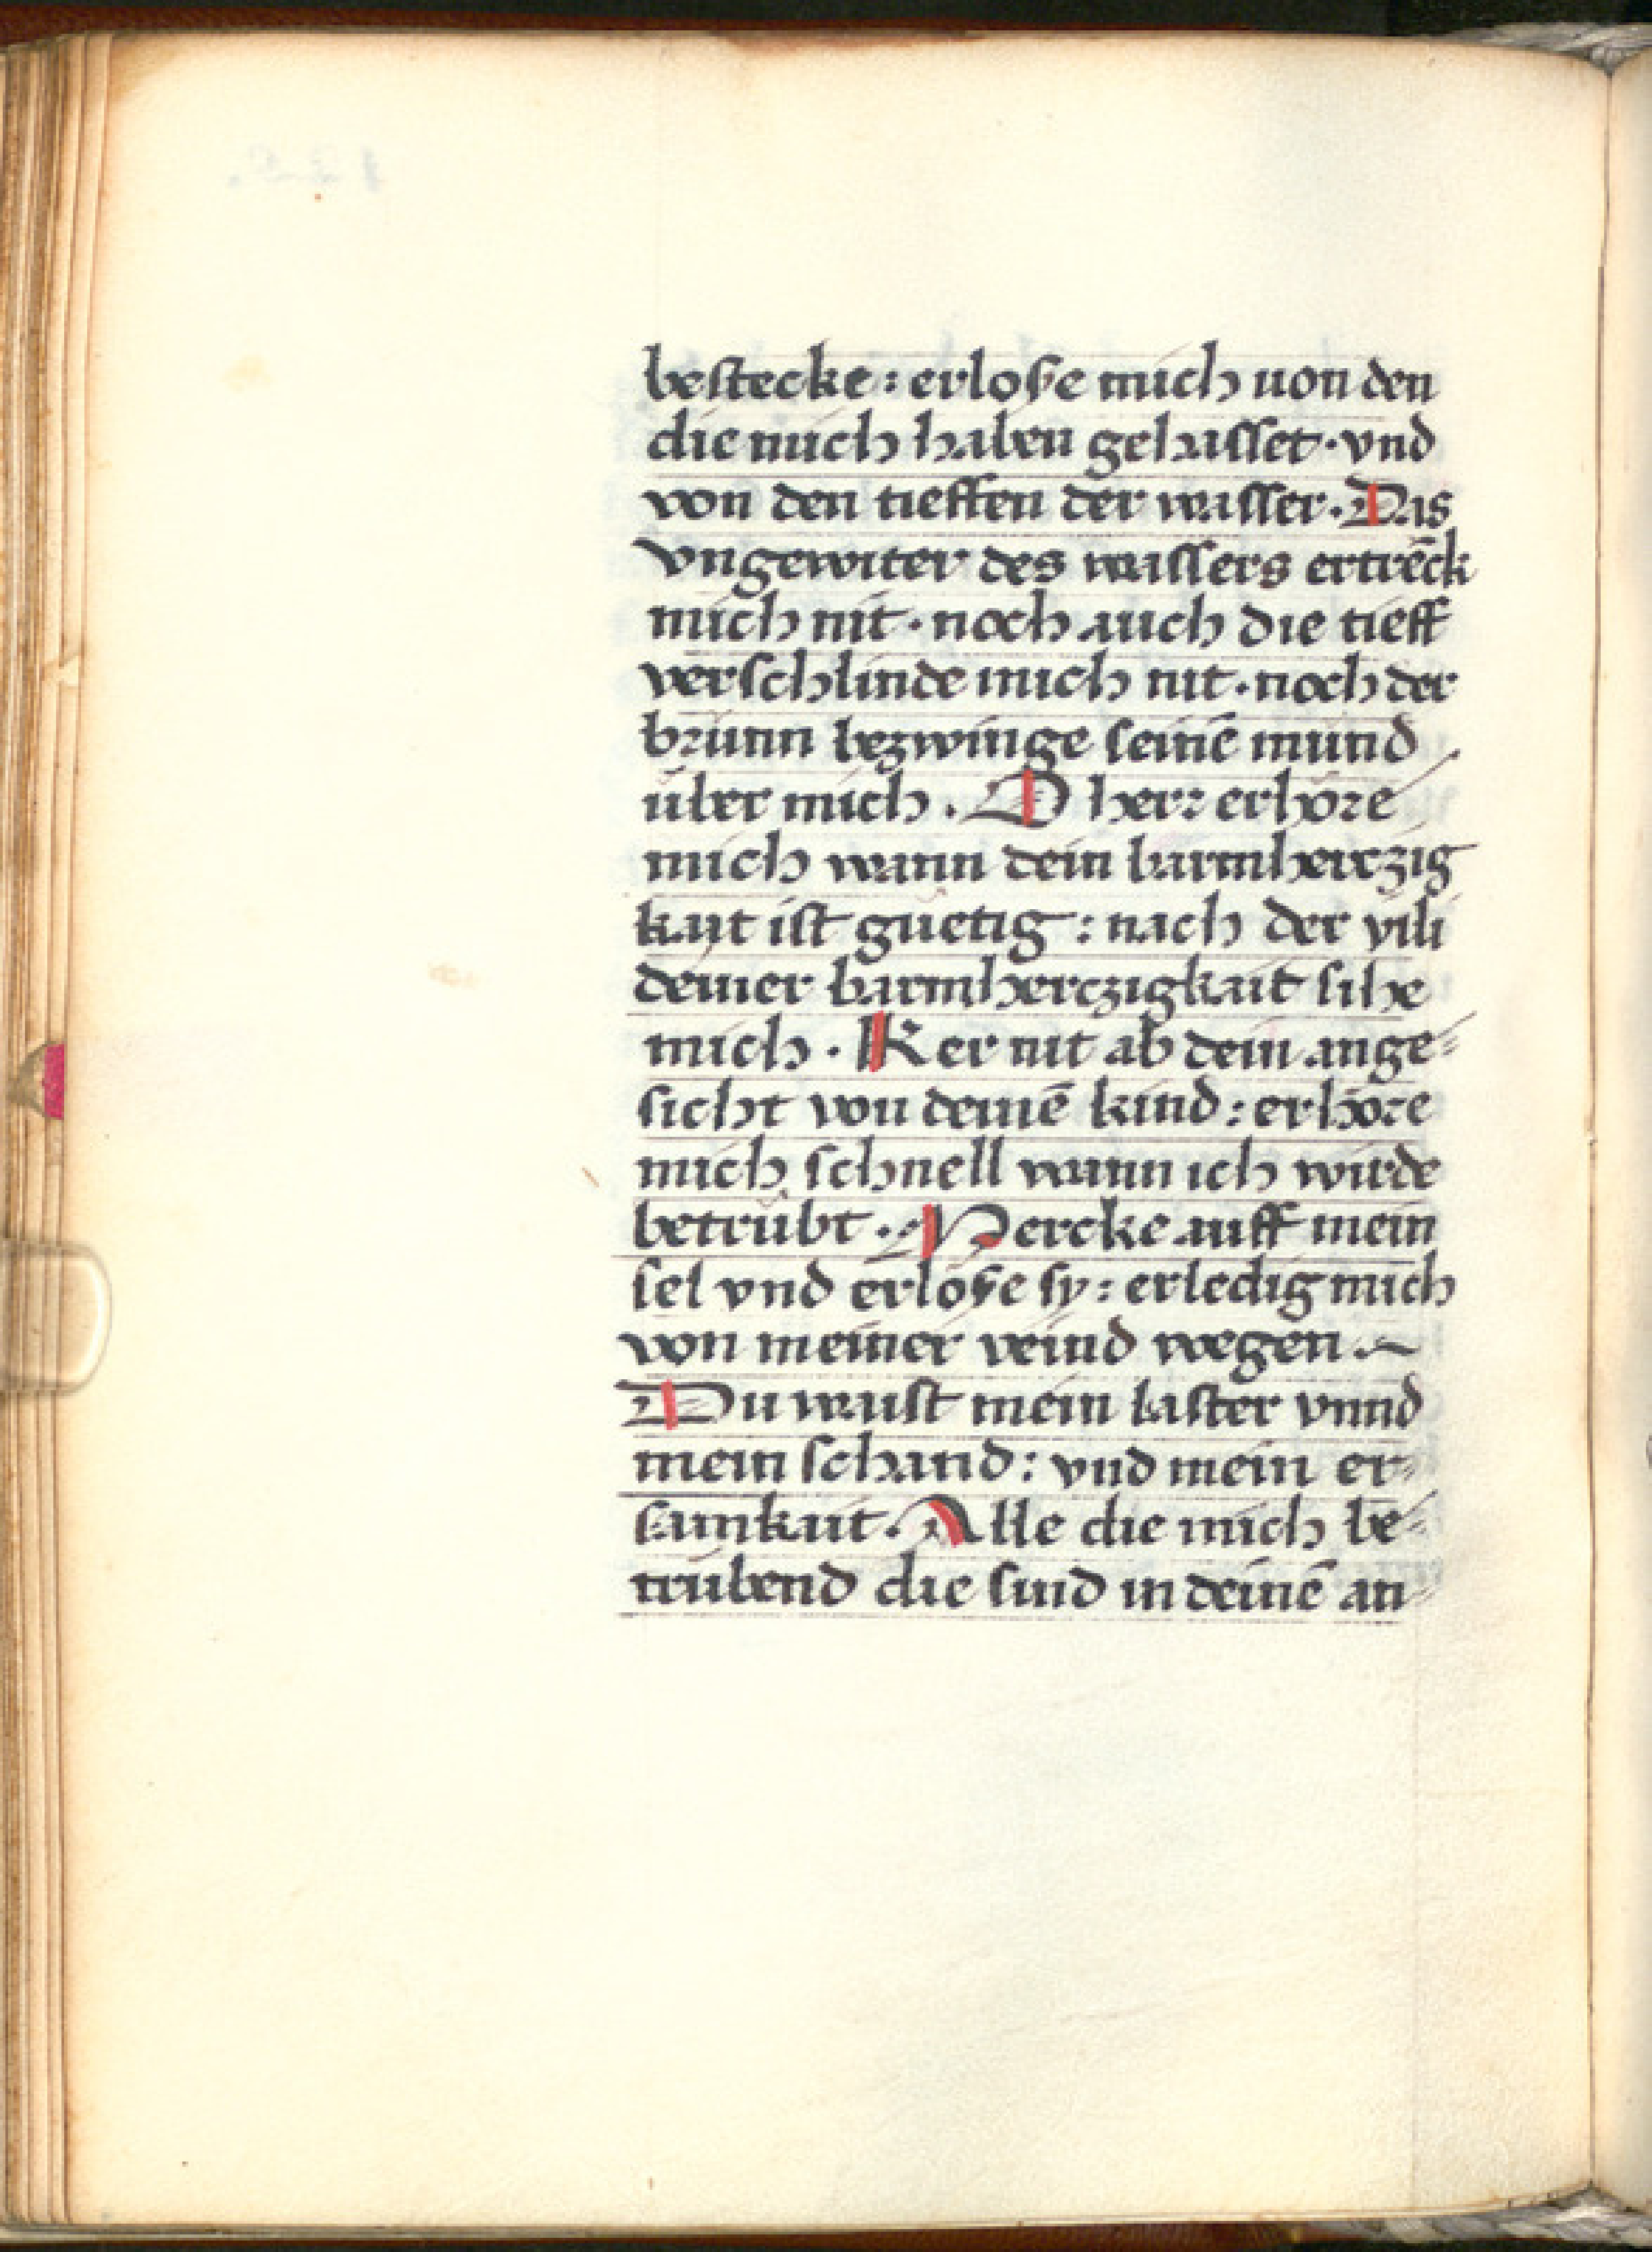 bestecke : erlose mich uon den
die mich haben gehasset · vnd
von den tieffen der wasser · Das
vngewiter des wassers ertrēck
mich nit · noch auch die tieff
verschlinde mich nit · noch der
brunn bezwinge seinē mund
über mich . O herr erhöre
mich wann dein barmherczig
kayt ist guetig : nach der vili
deiner barmherczigkait sihe
mich · Ker nit ab dein ange⸗
sicht von deinē kind : erhöre
mich schnell wann ich wirde
betrübt · Mercke auff mein
sel vnd erlöse sy : erledig mich
von meiner veind wegen ·
Du waist mein laster vnnd
mein schand : vnd mein er⸗
samkait · Alle die mich be⸗
trübend die sind in deinē an⸗